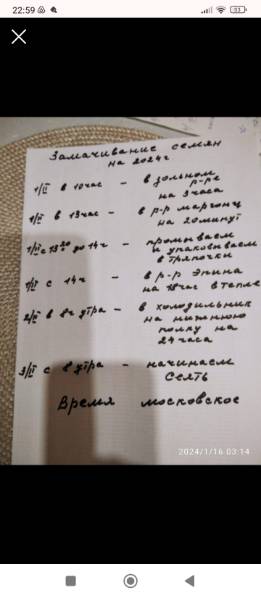 22:59
Замачивание семян
на 2024г
1/II в 10час - в зольном
р-ре
на 3 часа
1/II в 13час - в р-р марганц
на 20минут
1/II с 13²⁰ до 14ч - промываем
и упаковываем
в тряпочки
1/II с 14ч - в р-р Эпина
на 18час в тепле
2/II в 8ч утра - в холодильник
на нижнюю
полку на
24 часа
3/II с 8 утра - начинаем
сеять
Время московское
2024/1/16 03:14